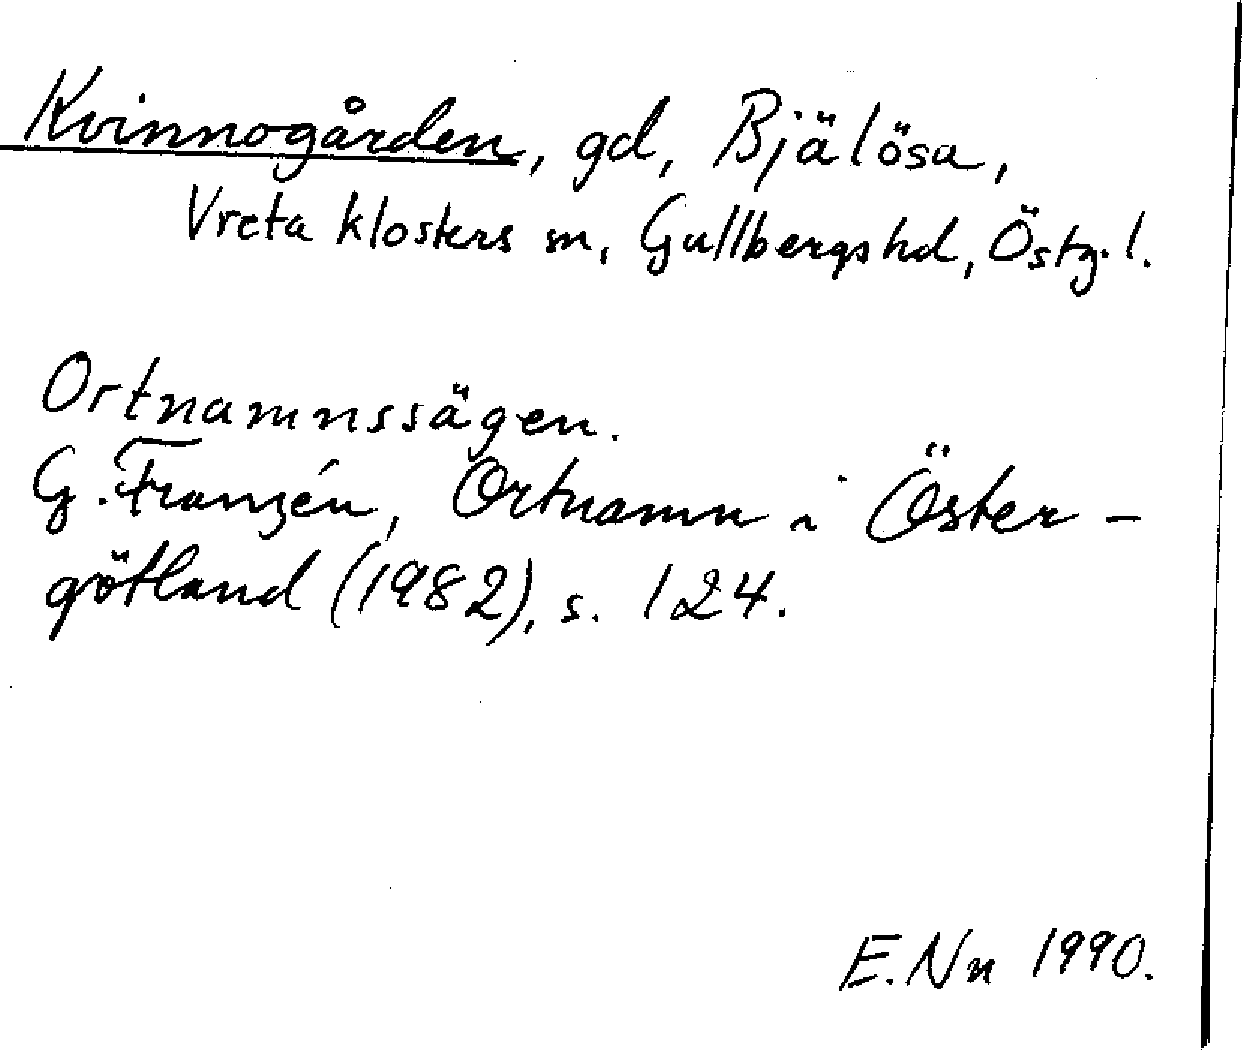 Kvinnogården, gd, Bjälösa,
Vreta klosters sn, Gullbergs hd, Östg. l.
Ortnamnssägen.
G. Franzén, Ortnamn i Öster-
götland (1982), s. 124.
E. Nn 1990.